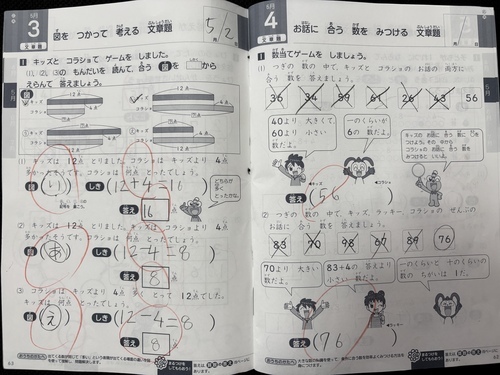 5月
3
文章題
図を つかって 考える 文章題
5/2
1 キッズと コラショで ゲームを しました。
(1)、(2)、(3)の もんだいを 読んで、合う 図を から
えらんで 答えましょう。
12点
4点
キッズ
コラショ
(1) キッズは 12点 とりました。コラショは キッズより 4点
多かったそうです。コラショは 何点 とったでしょう。
図 (い) しき (12+4=16)
答え 16 点
どちらが
多く
とったかな。
(2) キッズは 12点 とりました。
コラショは 何点 とったでしょう。
図 (あ) しき (12-4=8)
答え 8 点
(3) コラショは キッズより 4点 多く とって 12点でした。
キッズは 何点 とったでしょう。
図 (え) しき (12-4=8)
答え 8 点
5月
4
文章題
お話に 合う 数を みつける 文章題
1 数当てゲームを しましょう。
(1) つぎの 数の 中で、キッズと コラショの お話の 両方に
合う 数を 答えましょう。
36 34 59 61 26 43 56
40より 大きくて
60より 小さい
数だよ。
一のくらいが
6の 数だよ。
キッズ
コラショ
答え (56)
(2) つぎの 数の 中で、キッズ、ラッキー、コラショの ぜんぶの
お話に 合う 数を 答えましょう。
83 70 98 67 89 76
70より 大きい
数だよ。
83+4の 答えより
小さい 数だよ。
一のくらいと 十のくらいの
数の ちがいは 1だ。
ラッキー
答え (76)